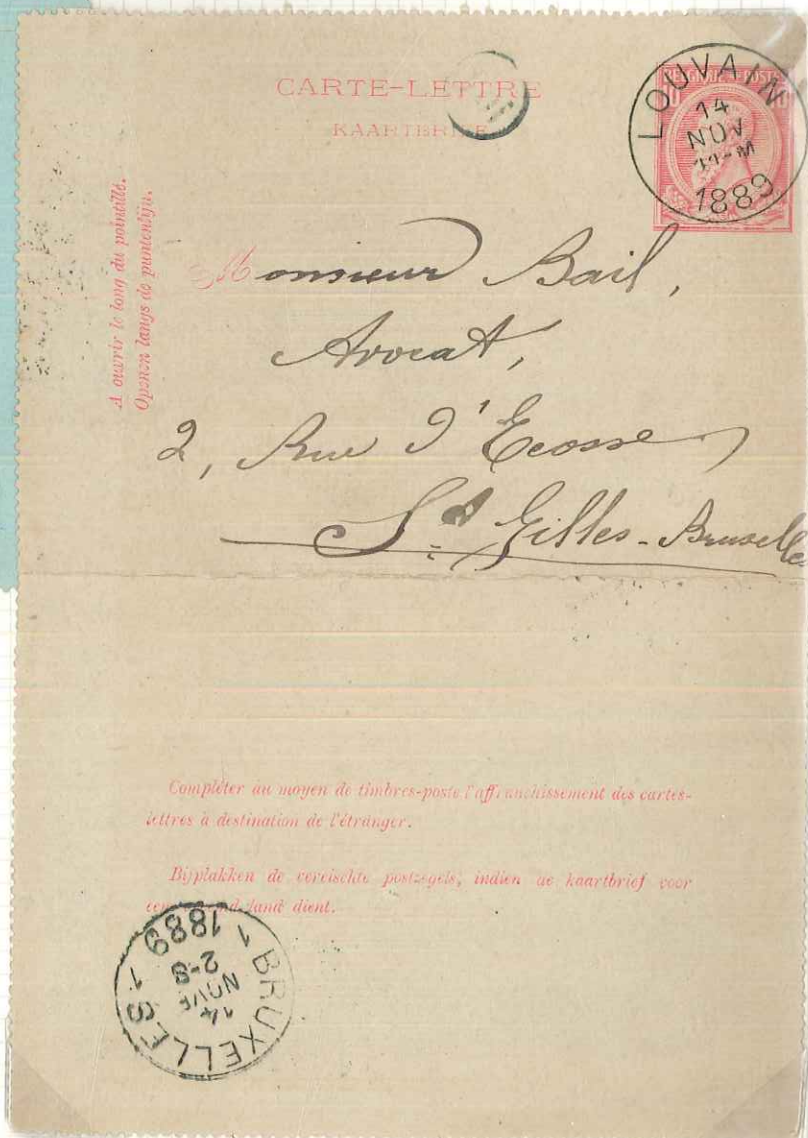 CARTE-LETTRE
KAARTBRIEF
BELGIQUE POSTES
LOUVAIN
14
NOV
11-M
1889
A ouvrir le long du pointillé.
Openen langs de puntenlijn.
Monsieur Bail,
Avocat,
2, Rue d'Ecosse
St Gilles-Bruxelles
Compléter au moyen de timbres-poste l'affranchissement des cartes-
lettres à destination de l'étranger.
Bijplakken de vereischte postzegels, indien de kaartbrief voor
land dient.
1 BRUXELLES 1
14
NOVE
2-S
1889